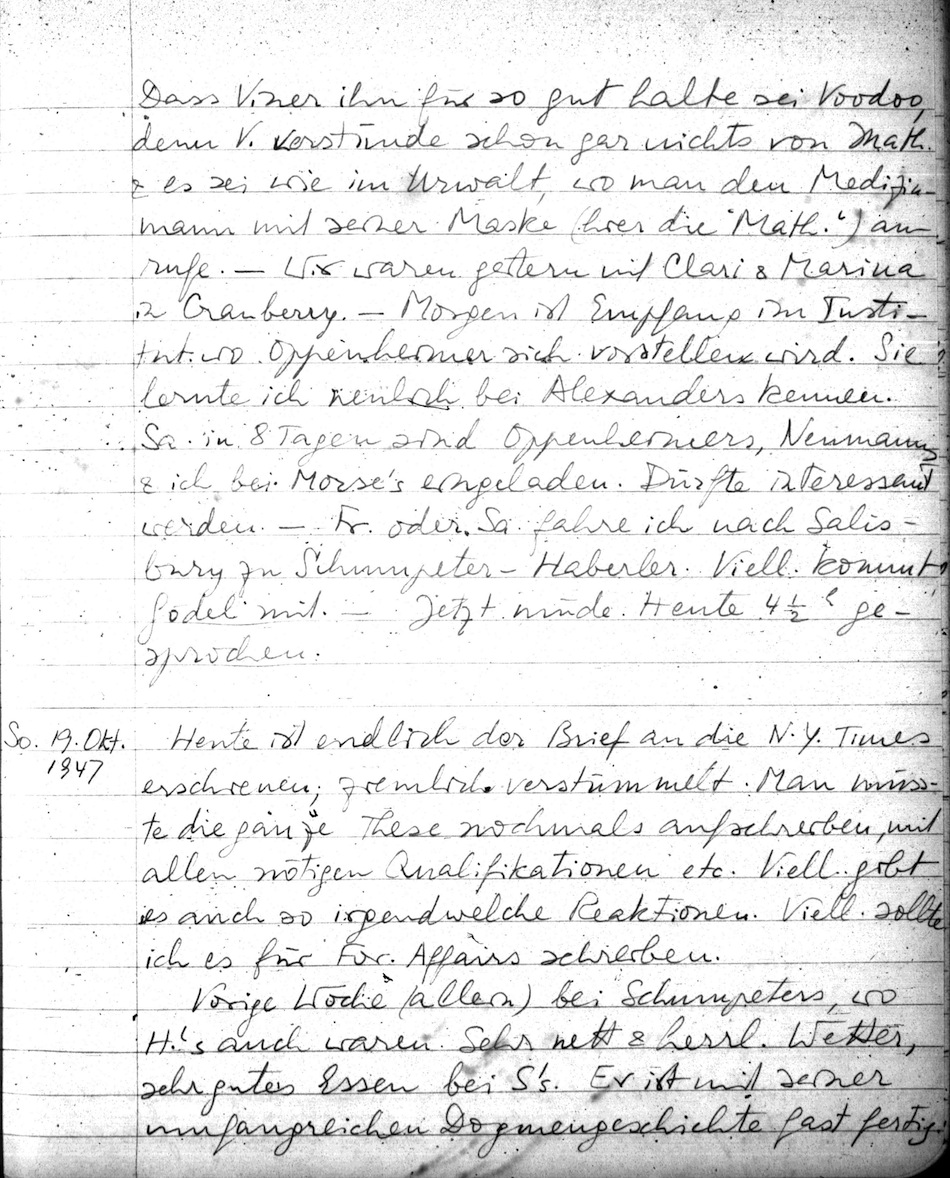 Dass Viner ihn für so gut halte sei Voodoo,
denn V. verstünde schon gar nichts von Math.
& es sei wie im Urwalt, wo man den Medizin-
mann mit seiner Maske (hier die "Math.") an-
rufe. — Wir waren gestern mit Clari & Marina
in Cranberry. — Morgen ist Empfang im Insti-
tut wo Oppenheimer sich vorstellen wird. Sie
lernte ich neulich bei Alexanders kennen.
Sa. in 8 Tagen sind Oppenheimers, Neumanns
& ich bei Morse's eingeladen. Dürfte interessant
werden. — Fr. oder Sa. fahre ich nach Salis-
bury zu Schumpeter - Haberler. Viell. kommt
Gödel mit. — Jetzt müde. Heute 4 ½ h ge-
sprochen.
So. 19. Okt.
1947
Heute ist endlich der Brief an die N.Y. Times
erschienen; ziemlich verstümmelt. Man müss-
te die ganze These nochmals aufschreiben, mit
allen nötigen Qualifikationen etc. Viell. gibt
es auch so irgendwelche Reaktionen. Viell. sollte
ich es für For. Affairs schreiben.
Vorige Woche (allein) bei Schumpeters, wo
H.'s auch waren. Sehr nett & herrl. Wetter,
sehr gutes Essen bei S's. Er ist mit seiner
umfangreichen Dogmengeschichte fast fertig.